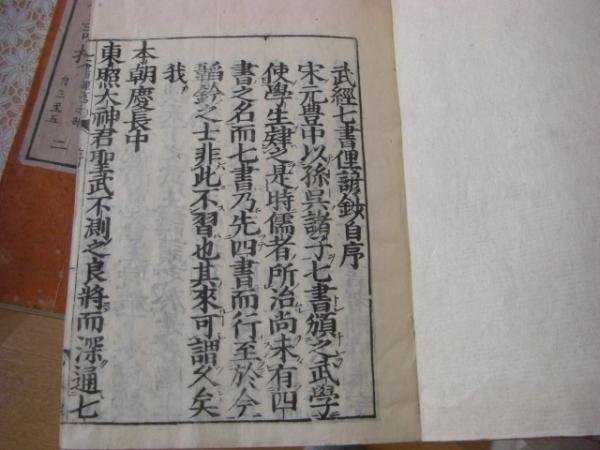 武經七書俚諺鈔自序
宋元豊中以孫呉諸子七書頒之武學
使學生肄之是時儒者所治尚未有四
書之名而七書乃先四書而行至於今
韜鈐之士非此不習也其來可謂久矣
我
本朝慶長中
東照大神君聖武不測之良將而深通七
自三至五
二